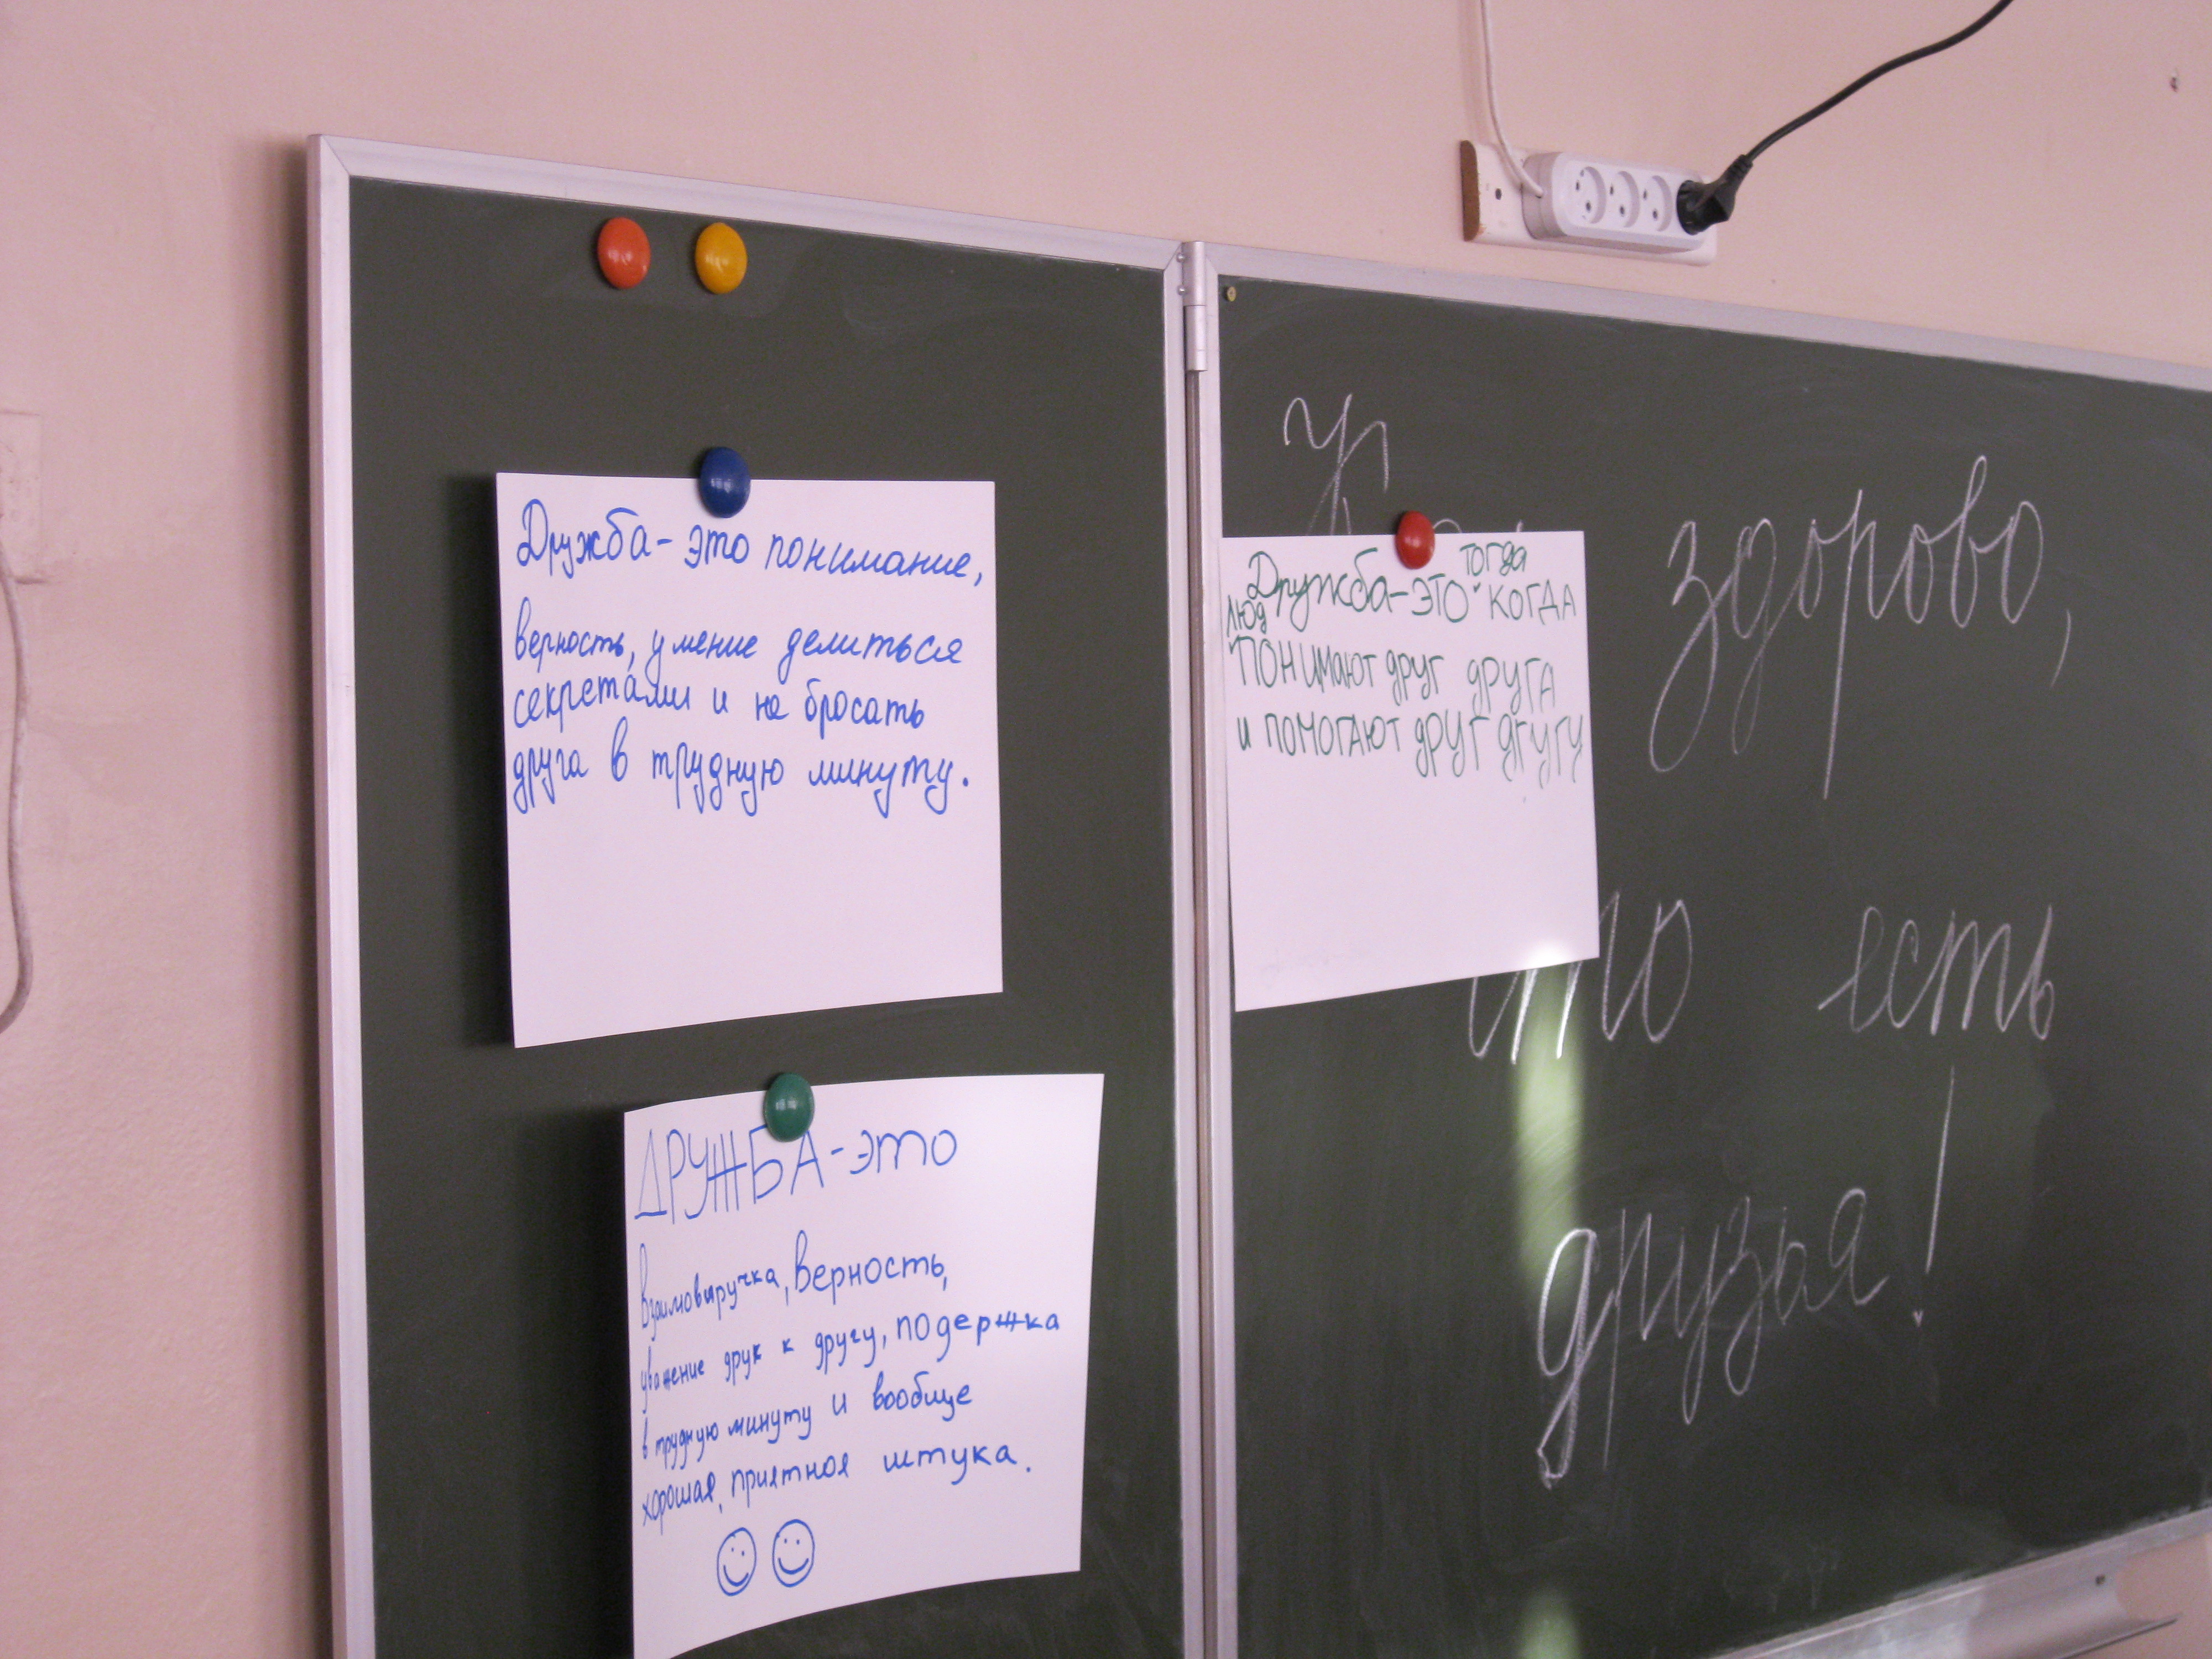 Дружба - это понимание,
верность, умение делиться
секретами и не бросать
друга в трудную минуту.
ДРУЖБА - это
Взаимовыручка, верность,
уважение друк к другу, подержка
в трудную минуту и вообще
хорошая, приятноя штука.
тогда
Дружба - ЭТО КОГДА
люд
ПОНИМАЮТ друг друга
и ПОМОГАЮТ друг другу
здорово,
что есть
друзья!